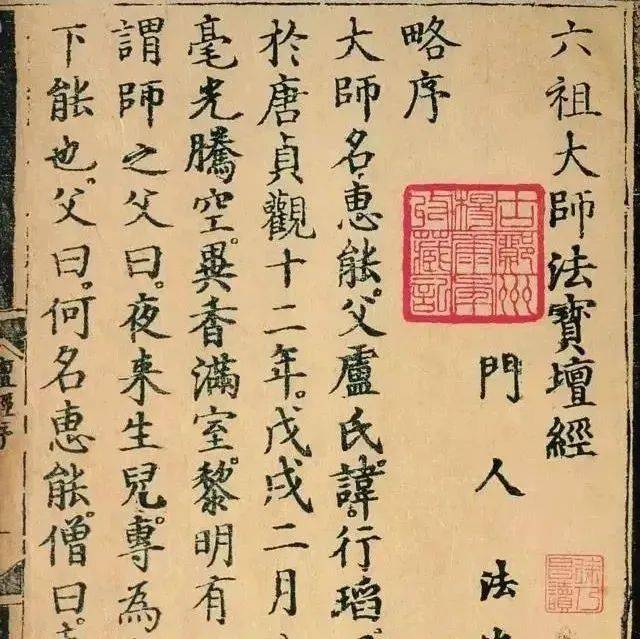 六祖大師法寶壇經
門人法
略序
大師名惠能。父盧氏。諱。行瑫。
於唐貞觀十二年。戊戌二月
毫光騰空。異香滿室。黎明有
謂師之父曰。夜来生兒。專為
下能也。父曰。何名惠能。僧曰。